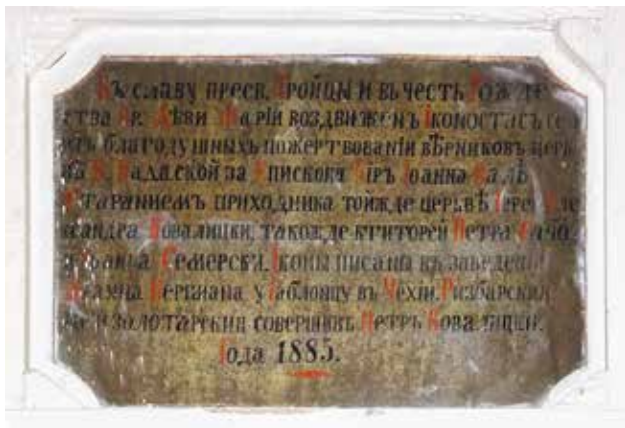 Къ славу пресв. Тройцы и въ честь Рожде
ства Пр. Дѣви Маріи воздвиженъ Iконостасъ
благодушныхъ пожертвованіи вѣрниковъ церк
за Епископа Кѵръ Iоанна Валѣ
Стараніемъ приходника тойжде церквѣ Iерея Але
ксандра Ковалицки, такожде ктиторей Петра
Iоанна Семерски. Iконы писани въ заведенію
Бергмана у Габлонцу въ Чехіи. Ризбарский
и золотарский совершивъ Петръ Ковалицки.
Года 1885.